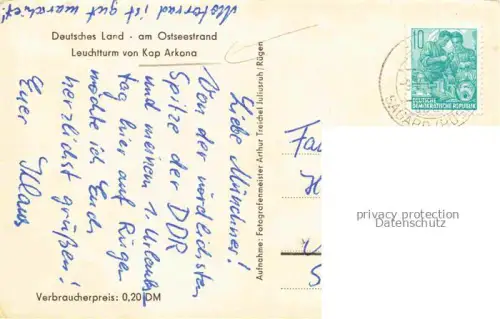 Motorrad ist gut marschiert!
Deutsches Land - am Ostseestrand
Leuchtturm von Kap Arkona
Liebe Mündiner!
Von der nördlichsten
Spitze der DDR
und meinem 1. Urlaubs-
tag hier auf Rügen
möchte ich Euch
herzlichst grüßen!
Euer Klaus
Verbraucherpreis: 0,20 DM
Aufnahme: Fotografenmeister Arthur Treichel Juliusruh / Rügen
10
DEUTSCHE
DEMOKRATISCHE REPUBLIK
SAGARD
Fa
privacy protection
Datenschutz